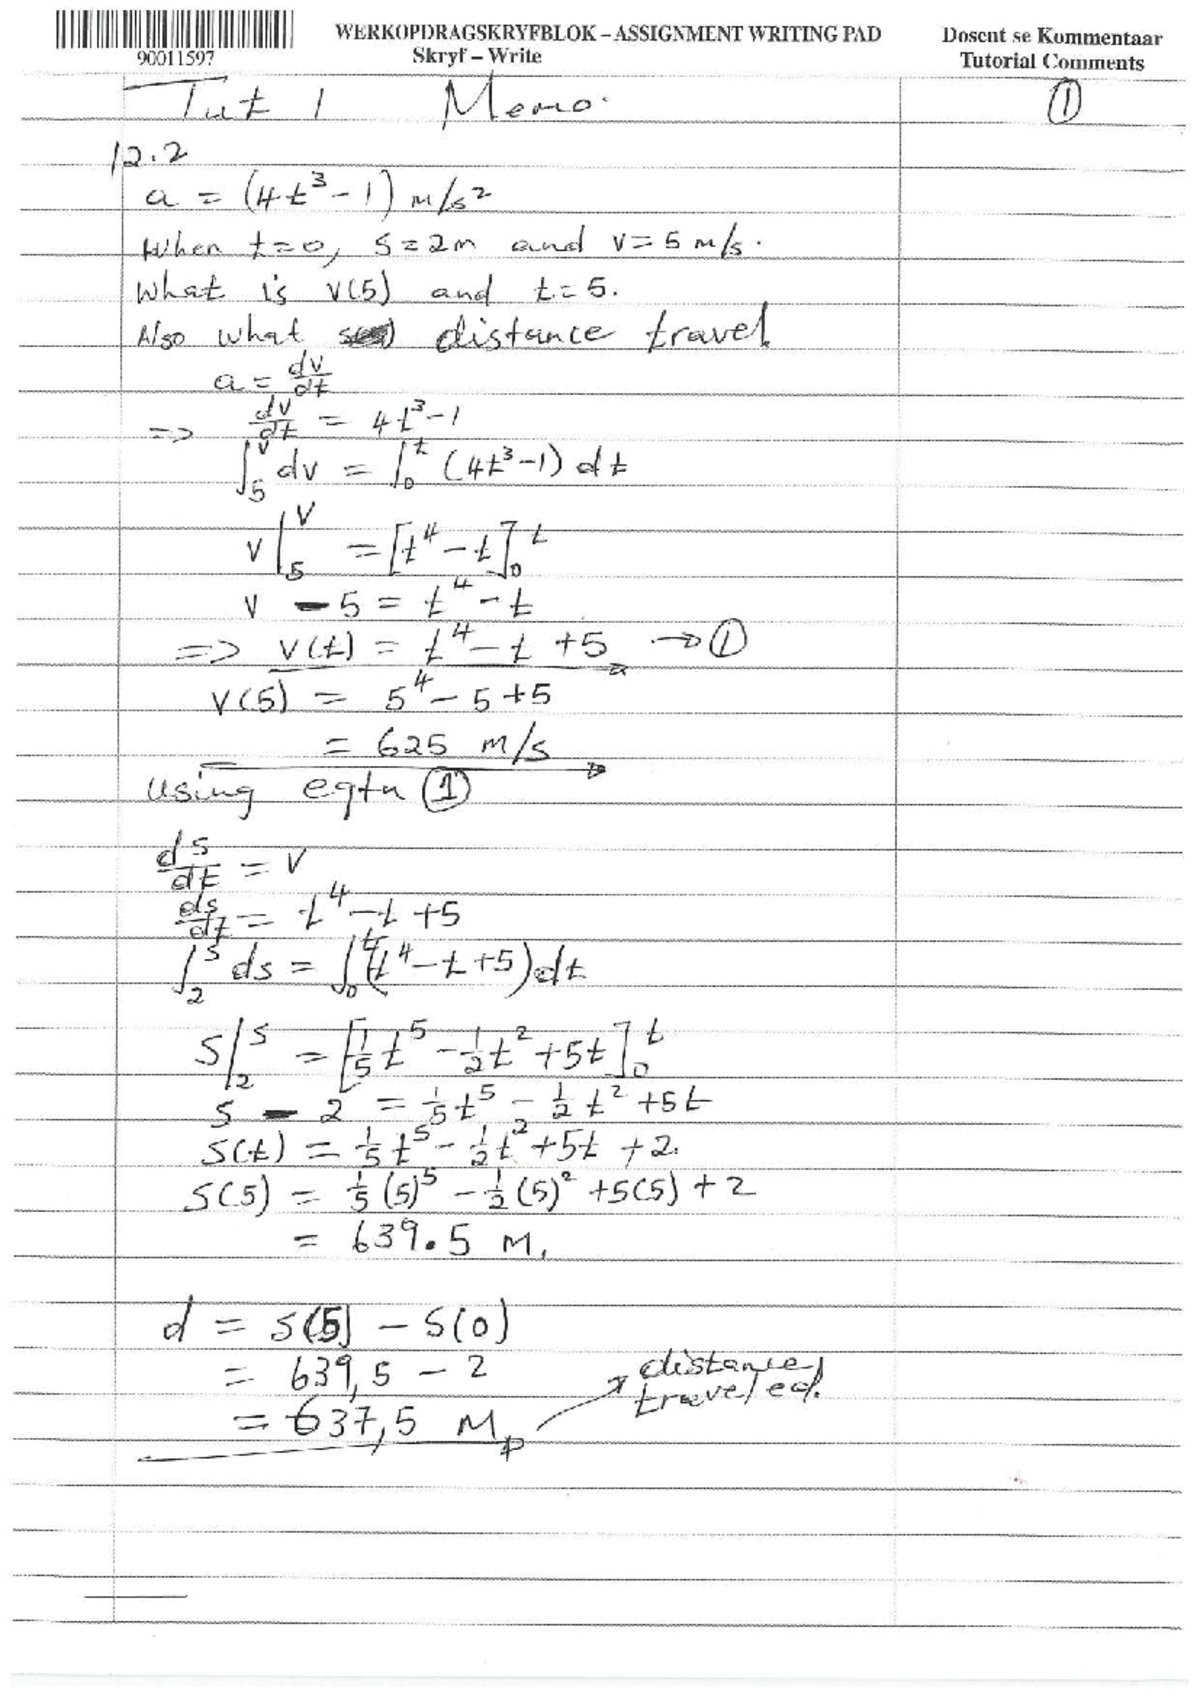 WERKOPDRAGSKRYFBLOK – ASSIGNMENT WRITING PAD
Skryf – Write
Dosent se Kommentaar
Tutorial Comments
90011597
Tut 1 Memo.
①
12.2
a = (4t³ - 1) m/s²
When t=0, s=2m and v=5 m/s.
What is v(5) and t=5.
Also what distance travel.
a = dv/dt
=> dv/dt = 4t³-1
∫₅ᵛ dv = ∫₀ᵗ (4t³-1) dt
v|₅ᵛ = [t⁴ - t]₀ᵗ
v - 5 = t⁴ - t
=> v(t) = t⁴ - t + 5 → ①
v(5) = 5⁴ - 5 + 5
= 625 m/s
using eqtn ①
ds/dt = v
ds/dt = t⁴ - t + 5
∫₂ˢ ds = ∫₀ᵗ (t⁴ - t + 5) dt
s|₂ˢ = [1/5 t⁵ - 1/2 t² + 5t]₀ᵗ
s - 2 = 1/5 t⁵ - 1/2 t² + 5t
s(t) = 1/5 t⁵ - 1/2 t² + 5t + 2.
s(5) = 1/5 (5)⁵ - 1/2 (5)² + 5(5) + 2
= 639.5 m.
d = s(5) - s(0)
= 639,5 - 2
= 637,5 m
distance
traveled.